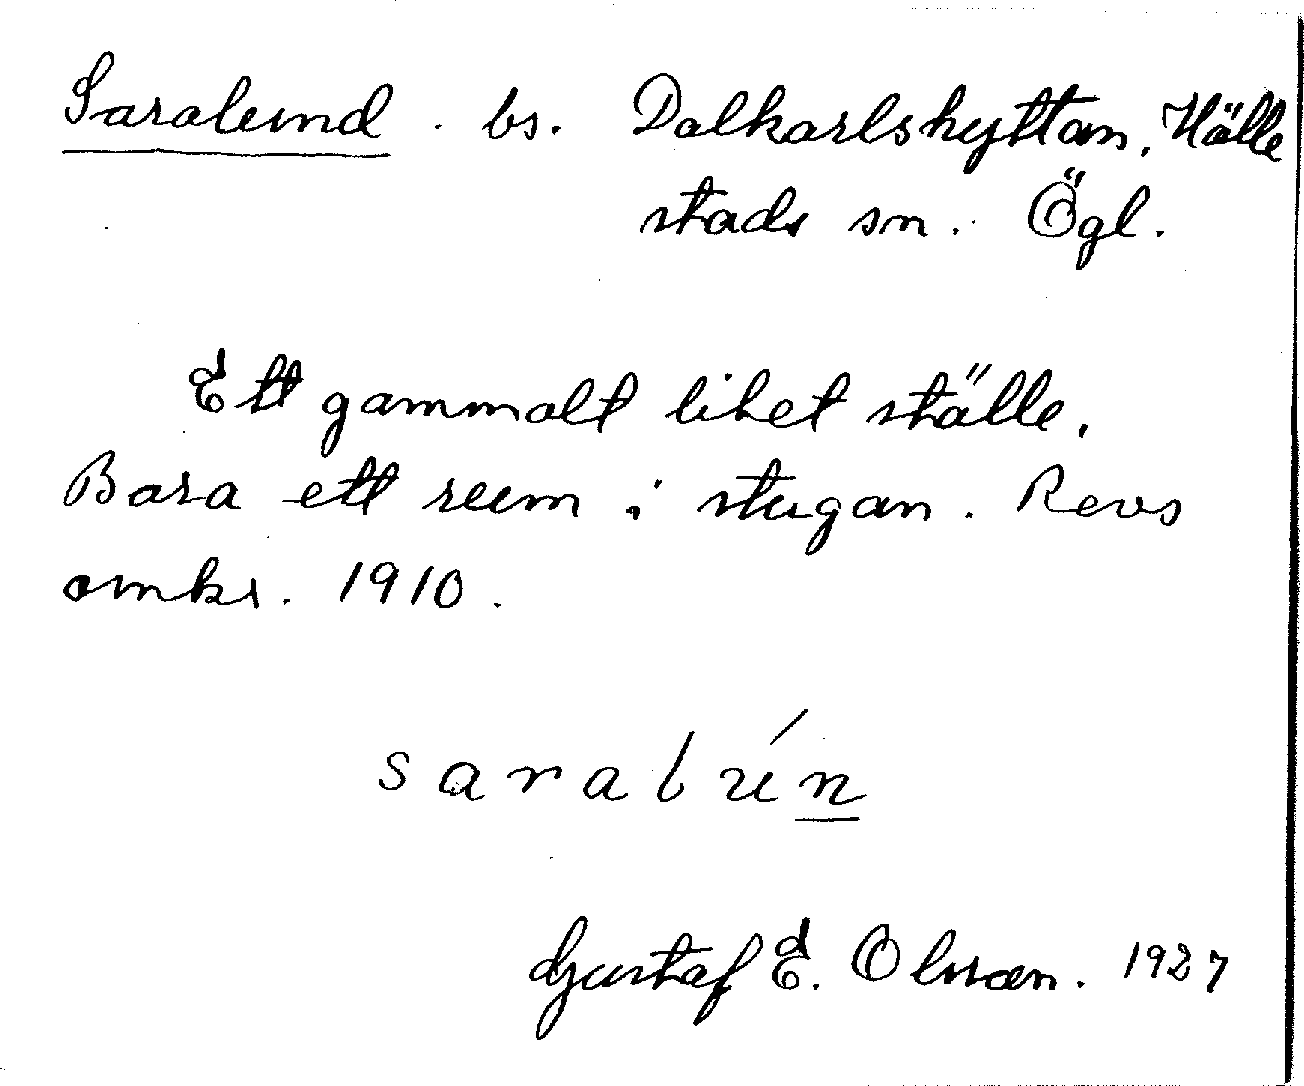 Saralund . bs. Dalkarlshyttan, Hälle
stads sn. Ögl.
Ett gammalt litet ställe.
Bara ett rum i stugan. Revs
omkr. 1910.
saralún
Gustaf E. Olsson. 1927